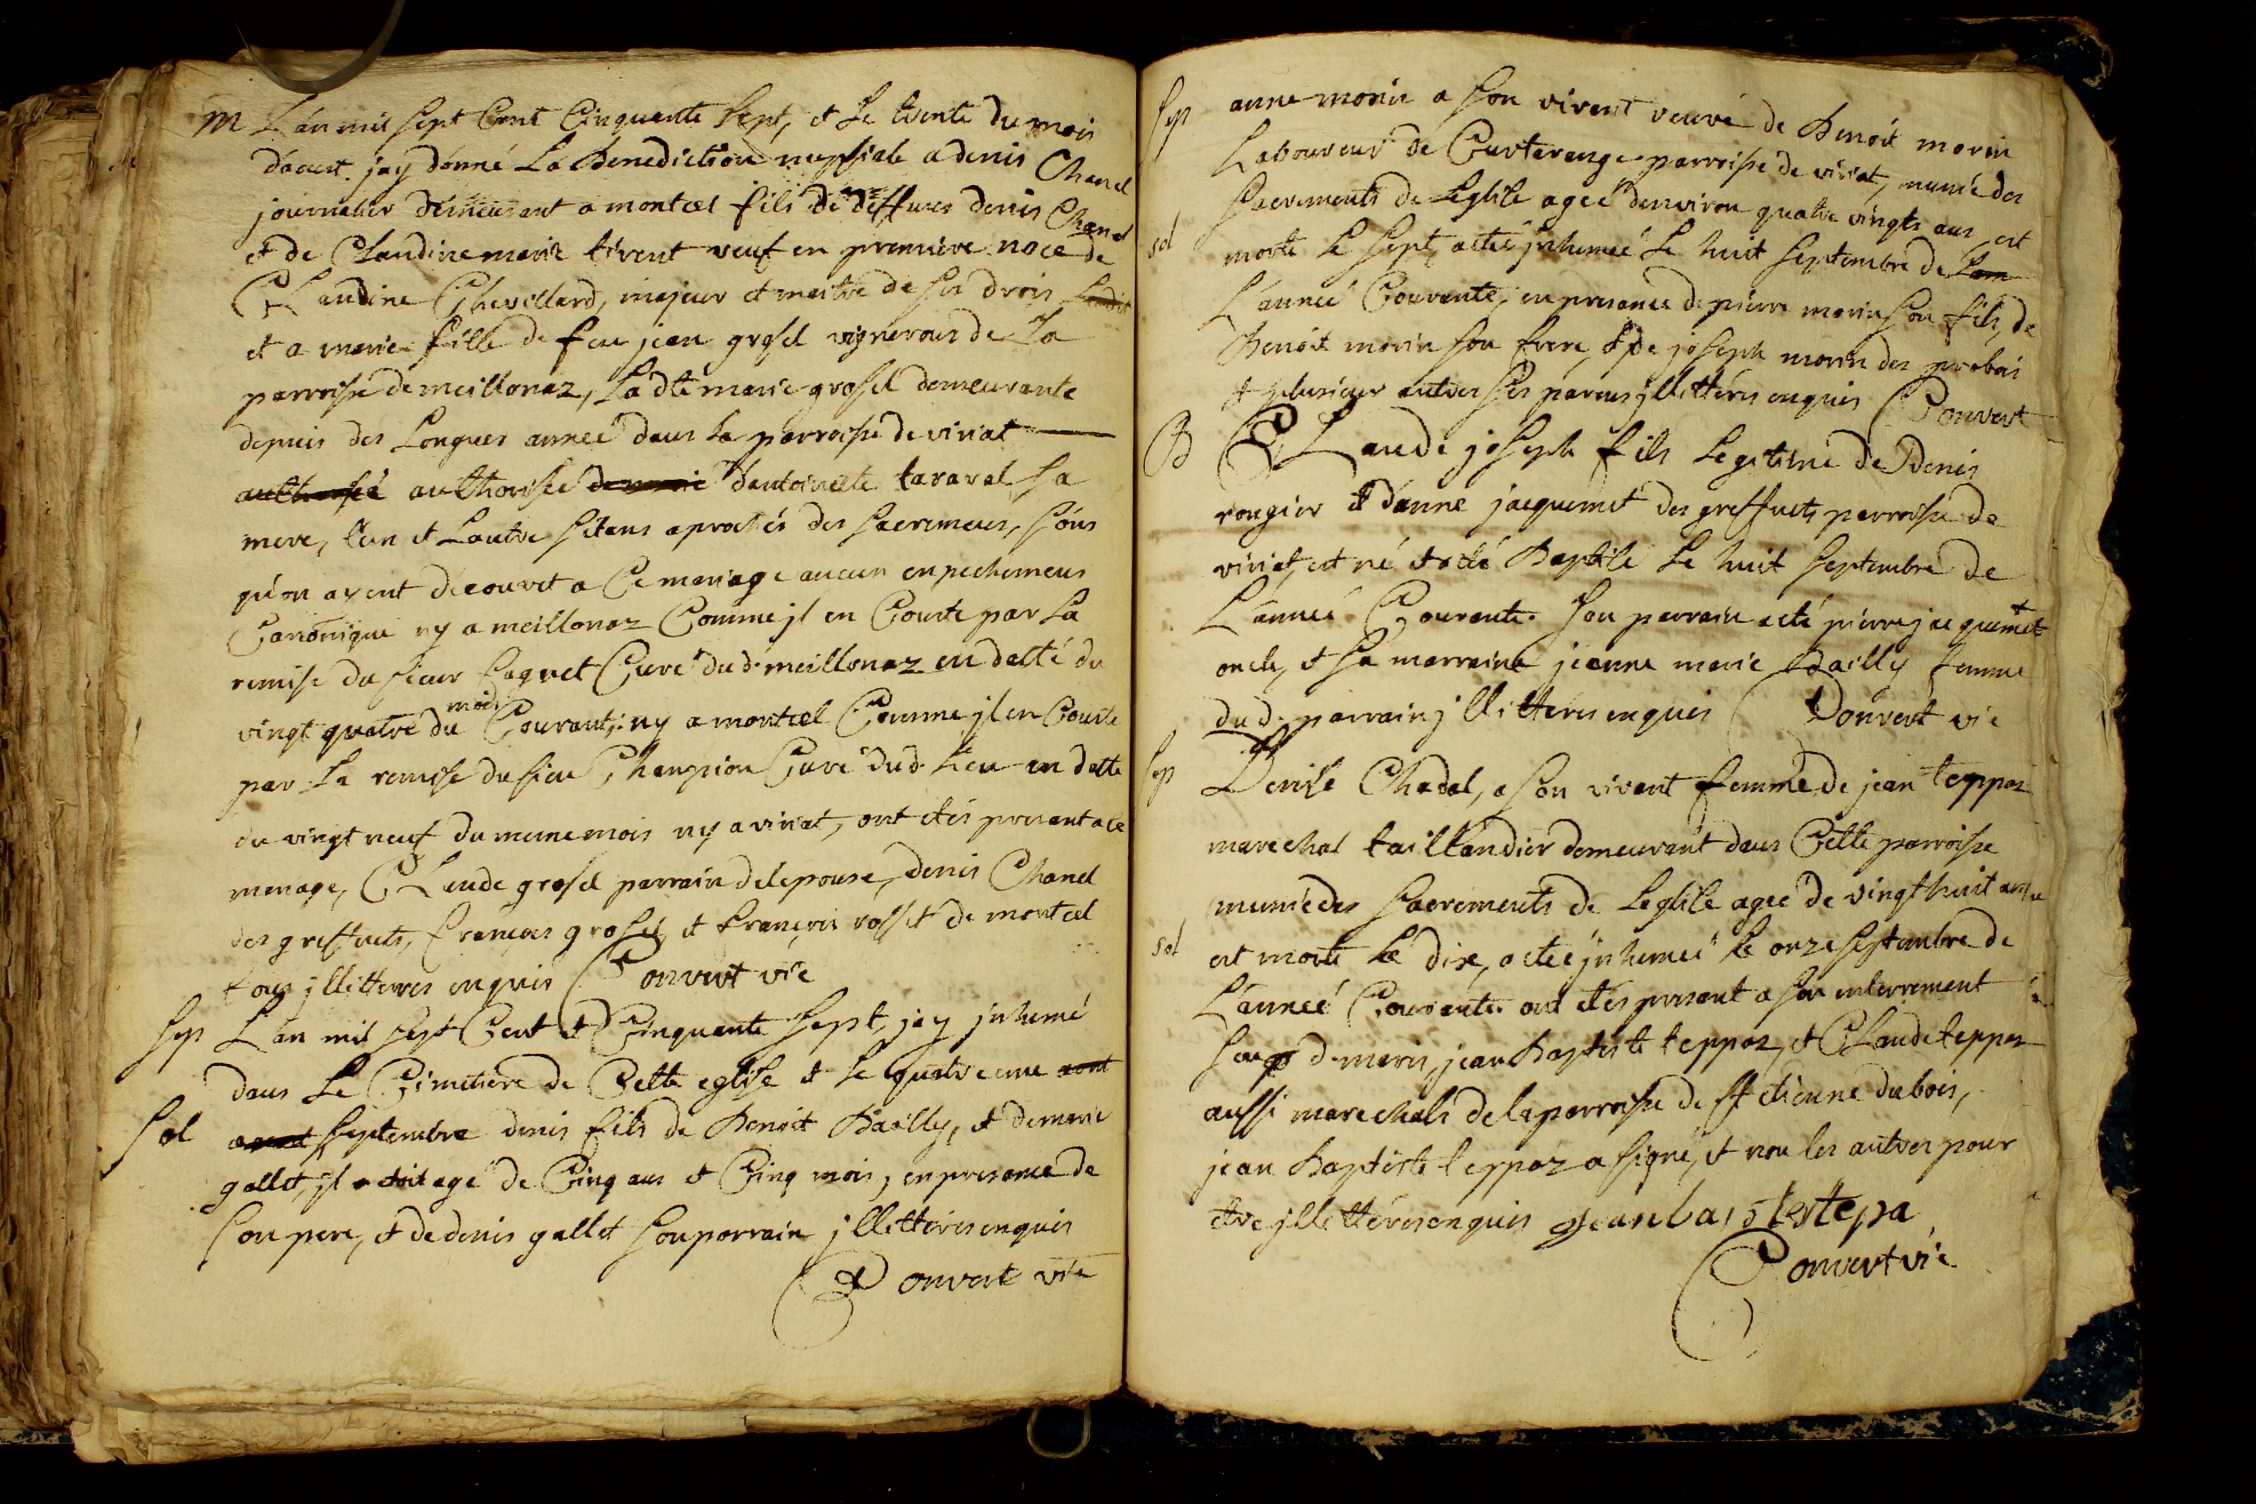 M L'an mil sept Cent Cinquante sept, et le trente du mois
d'aout. jay donné La Benediction nuptiale a denis Chanel
journalier demeurant a montcel fils de deffunct denis Chanel
et de Claudine marie vivent veuf en premiere noce de
CLaudine Chevillard, majeur et maitre de ses drois
et a marie fille de feu jean grosel vigneron de La
parroisse de meillonaz, La dte marie grosel demeurante
depuis des Longues anneé dans La parroisse de viriat
authorisé authorisée de marie d'antoinette taraval sa
mere, L'un et Lautre s'etans aprochés des sacremens, sans
qu'on ayent decouvrt a Ce mariage aucun enpechemens
Canonique ny a meillonaz Comme jl en Conste par La
remise du sieur Curé dud. meillonaz en datté du
vingt quatre du mois Courant; ny a montcel Comme jl en Conste
par La remise du sieur Champion Curé dud. Lieu en datte
du vingt neuf du meme mois ny a viriat, ont etés present a ce
mariage, CLaude grosel parrain de lepouse, denis Chanel
des greffiets, francois grosel, et françois rosset de montcel
tous jllitteres enquis Convert vic
Sep L'an mil sept Cent et Cinquante sept, jay jnhumé
dans Le Cimetiere de Cette eglise et le quatrieme aout
sol aout septembre denis fils de Benoit Bailly, et de marie
gallet, jl etoit agé de Cinq ans et Cinq mois, en presence de
son pere, et de denis gallet son parrain jllitteres enquis
Convert vic
Sep anne morin a son vivent veuve de Benoit morin
Laboureur de Curtarenge parroisse de viriat, munie des
sacrements de Leglise ageé denviron quatre vingts ans, est
sol morte le sept, a eteé jnhumeé le huit septembre de Lan
L'anneé Courante, en presence de pierre morin son fils, de
Benoit morin son frere, et de joseph morin des probais
et plusieur autres ses parens jllitteres enquis Convert
B CLaude joseph fils Legitime de Denis
rongier et d'anne jacquemet des greffiets parroisse de
viriat, est né et a eté Baptise Le huit septembre de
L'anneé Courante. son parrain a eté pierre jacquemet
oncle, et sa marraine jeanne marie Bailly femme
du d. parrain jllitteres enquis Convert vic
Sep Denise Chadal, a son vivant femme de jean teppaz
marechal taillandier demeurant dans Cette parroisse
munie des sacrements de Leglise ageé de vingt huit ans
sol est morte Le dix, a eteé jnhumeé le onze septembre de
L'anneé Courante. ont etés present a son enterrement
son d. maris, jean Baptiste teppaz, et CLaude teppaz
aussi marechals de la parroisse de st etienne du bois,
jean Baptiste teppaz a signé, et non les autres pour
etre jllitteres enquis jeanbatistetepa
Convert vic